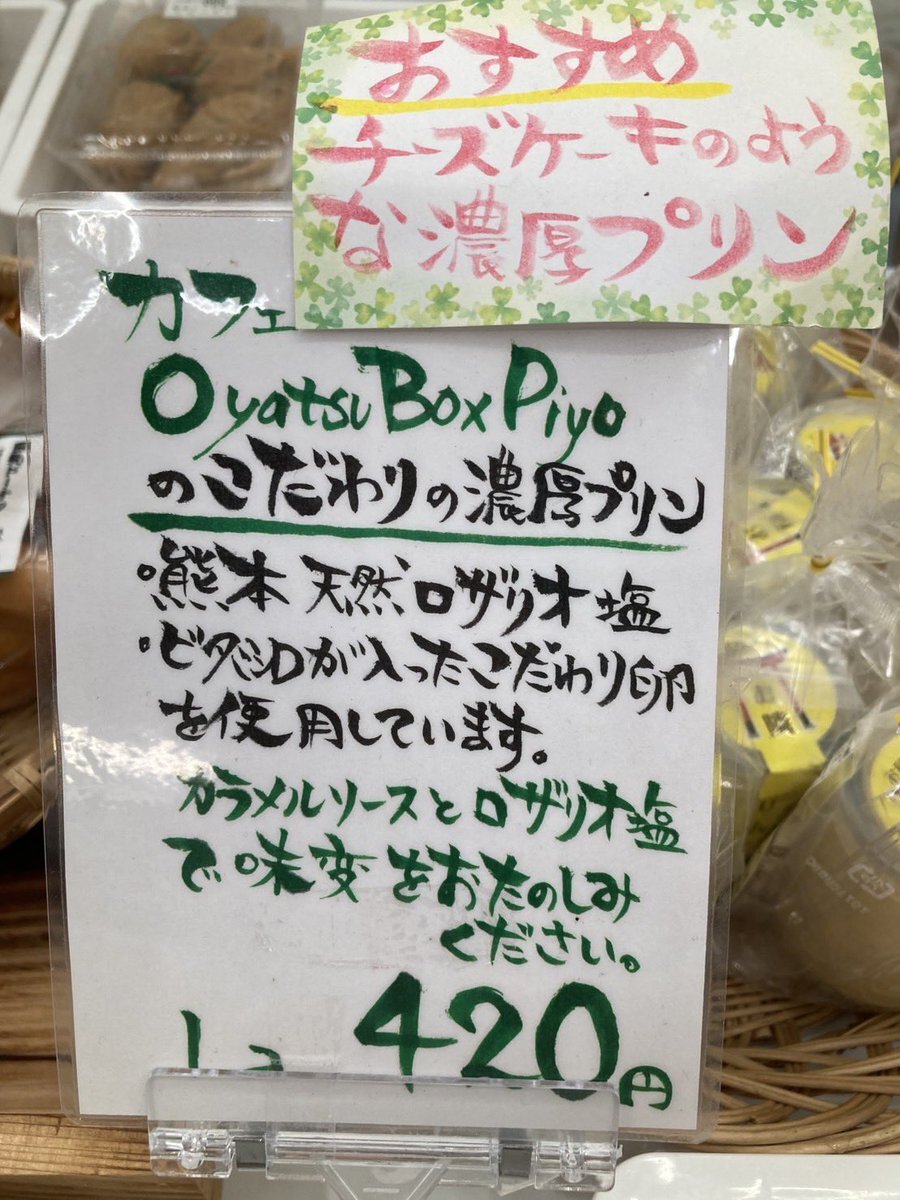 おすすめ
チーズケーキのよう
な濃厚プリン
カフェ
Oyatsu Box Piyo
のこだわりの濃厚プリン
•熊本 天然ロザリオ塩
•ビタミンDが入ったこだわり卵
を使用しています。
カラメルソースとロザリオ塩
で味変をおたのしみ
ください。
1コ 420円